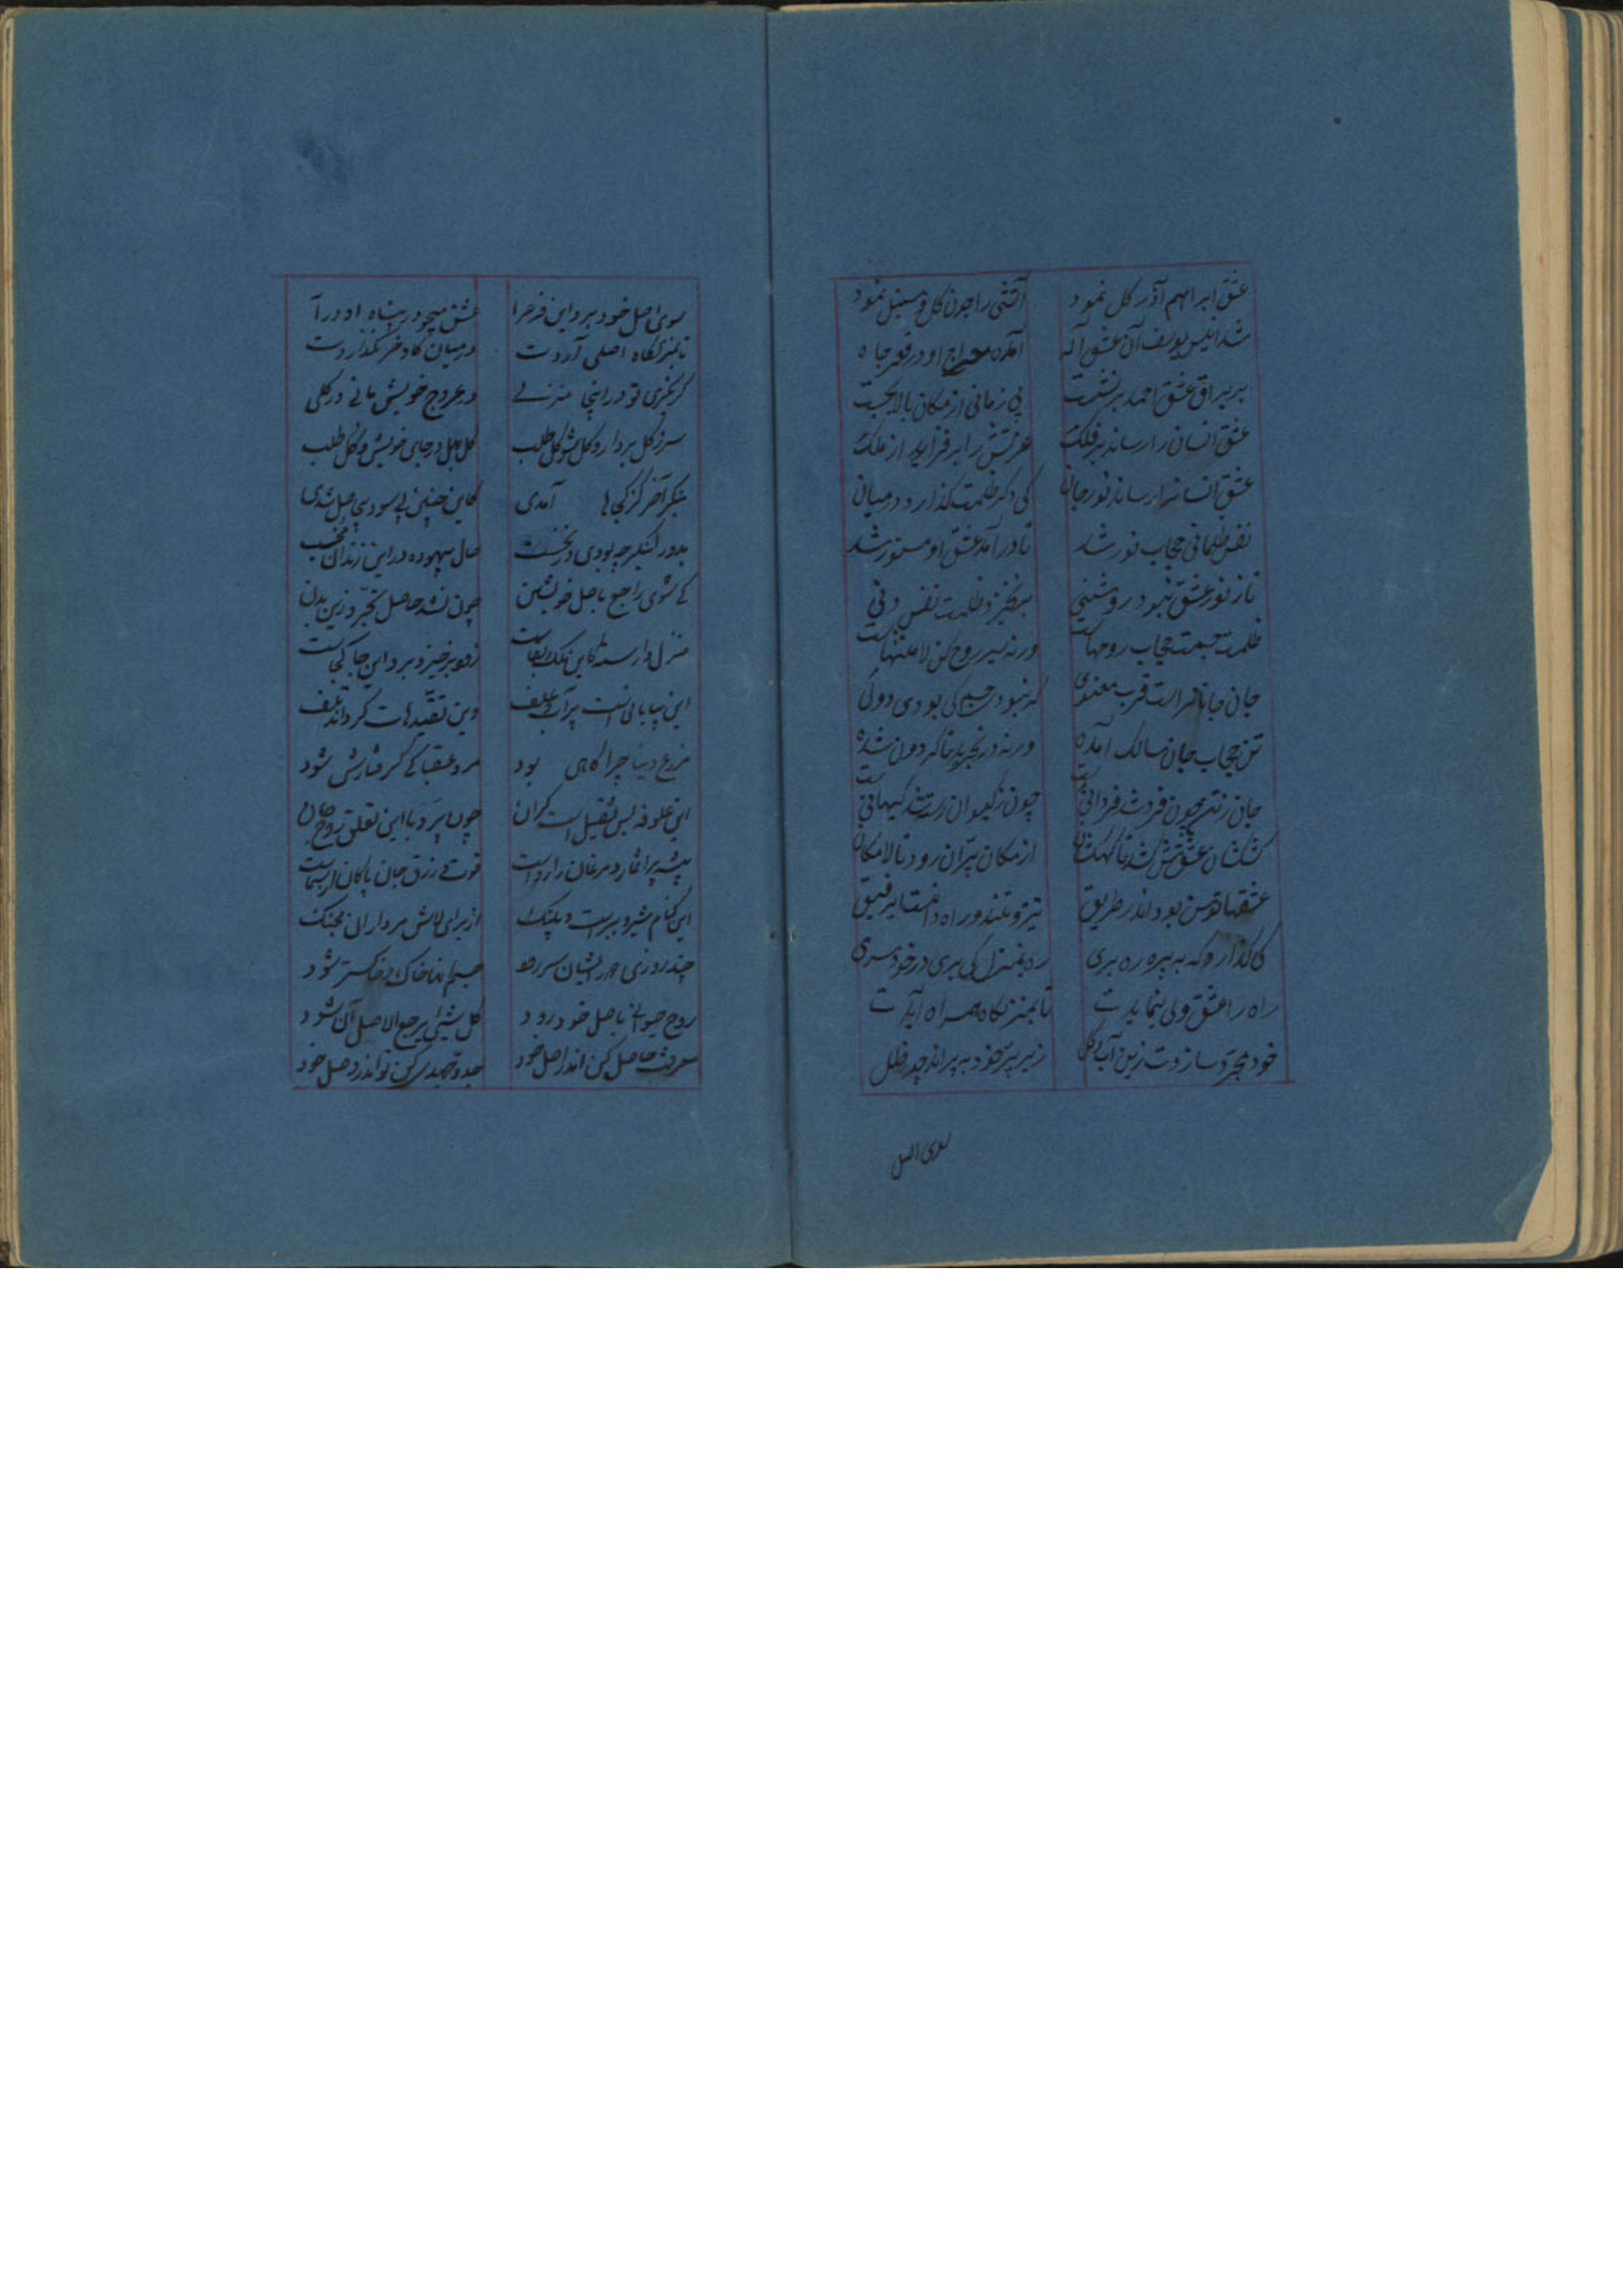 عشق ابراهیم آذر گل نمود آتشی را چون گل و سنبل نمود
شد انیس یوسف آن عشق آله آمده معراج او در قعر چاه
بر براق عشق احمد بر نشست بی زمانی از مکان بالا بجست
عشق انسان را رساند بر فلک هر تنش را بر فزاید از ملک
عشق انسانرا رساند نور جان کی دگر ظلمت گذارد در میان
نفس ظلمانی حجاب نور شد تا در آمد عشق او مستور شد
تا ز نور عشق نبود روشنی بر نخیزد ظلمت نفس دنی
ظلمت جسمت حجاب روحهاست ورنه سیر روح کن لا منتهاست
جان جانانراست قرب معنوی گر نبود جسم کی بودی دوئی
تن حجاب جان سالک آمده ورنه در تجرید خاک دون شده
جان ز تن چون فرد شد فردانی است چون ز کیوان رست کیهانی است
کش عشق تا کهکشان از مکان پران رود تا لامکان
عشقها توسن بود اندر طریق تیز و تند و راه دانست ایرفیق
کی گذارد که به بیره ره بری ره بمنزل کی بری در خود سری
راه را عشق ولی بنمایدت تا بمنزلگاه همراه آیدت
خود مجرد سازدت زین آب و گل زیر پر خود بپراند چو ظل
سوی اصل
سوی اصل خود برد این فرع را عشق میجو در پناه او درآ
تا بمنزلگاه اصلی آردت در میان گاو و خر نگذاردت
گر بگیری تو در اینجا منزلی در عروج خویش مانی در گلی
سر ز گل بردار و گل شو گل طلب گل بهل در جای خویش و گل طلب
بنگر آخر کز کجاها آمدی کاین چنین بی سود و بیحاصل شدی
بدو بنگر چه بودی در نخست حال بیهوده در این زندان مخسب
کی شوی راجع باصل خویشتن چون نشد حاصل تجرد زین بدن
منزل وارسته کاین ملک بقاست زود برخیز و برو این جا کجاست
این بیابانیست پر آب و علف وین تقیدهات گرداند تلف
مزرع دنیا چراگاهی بود مرد عقبا کی گرفتارش شود
این علوفه بس ثقیل است و گران چون پرد با این تعلق روح جان
بیشه پر اثمار و مرغان را رواست قوت و رزق جان پاکان از سماست
این کنام شیر و ببر است و پلنگ از برای لاش مرداران بجنگ
چند روزی هر ایشان سر رود جسم ما خاک و خاکستر شود
روح حیوانی باصل خود رود کل شیئی یرجع الا صل آن شود
معرفت حاصل کن اندر اصل خود جد و جهدی کن تو اندر وصل خود